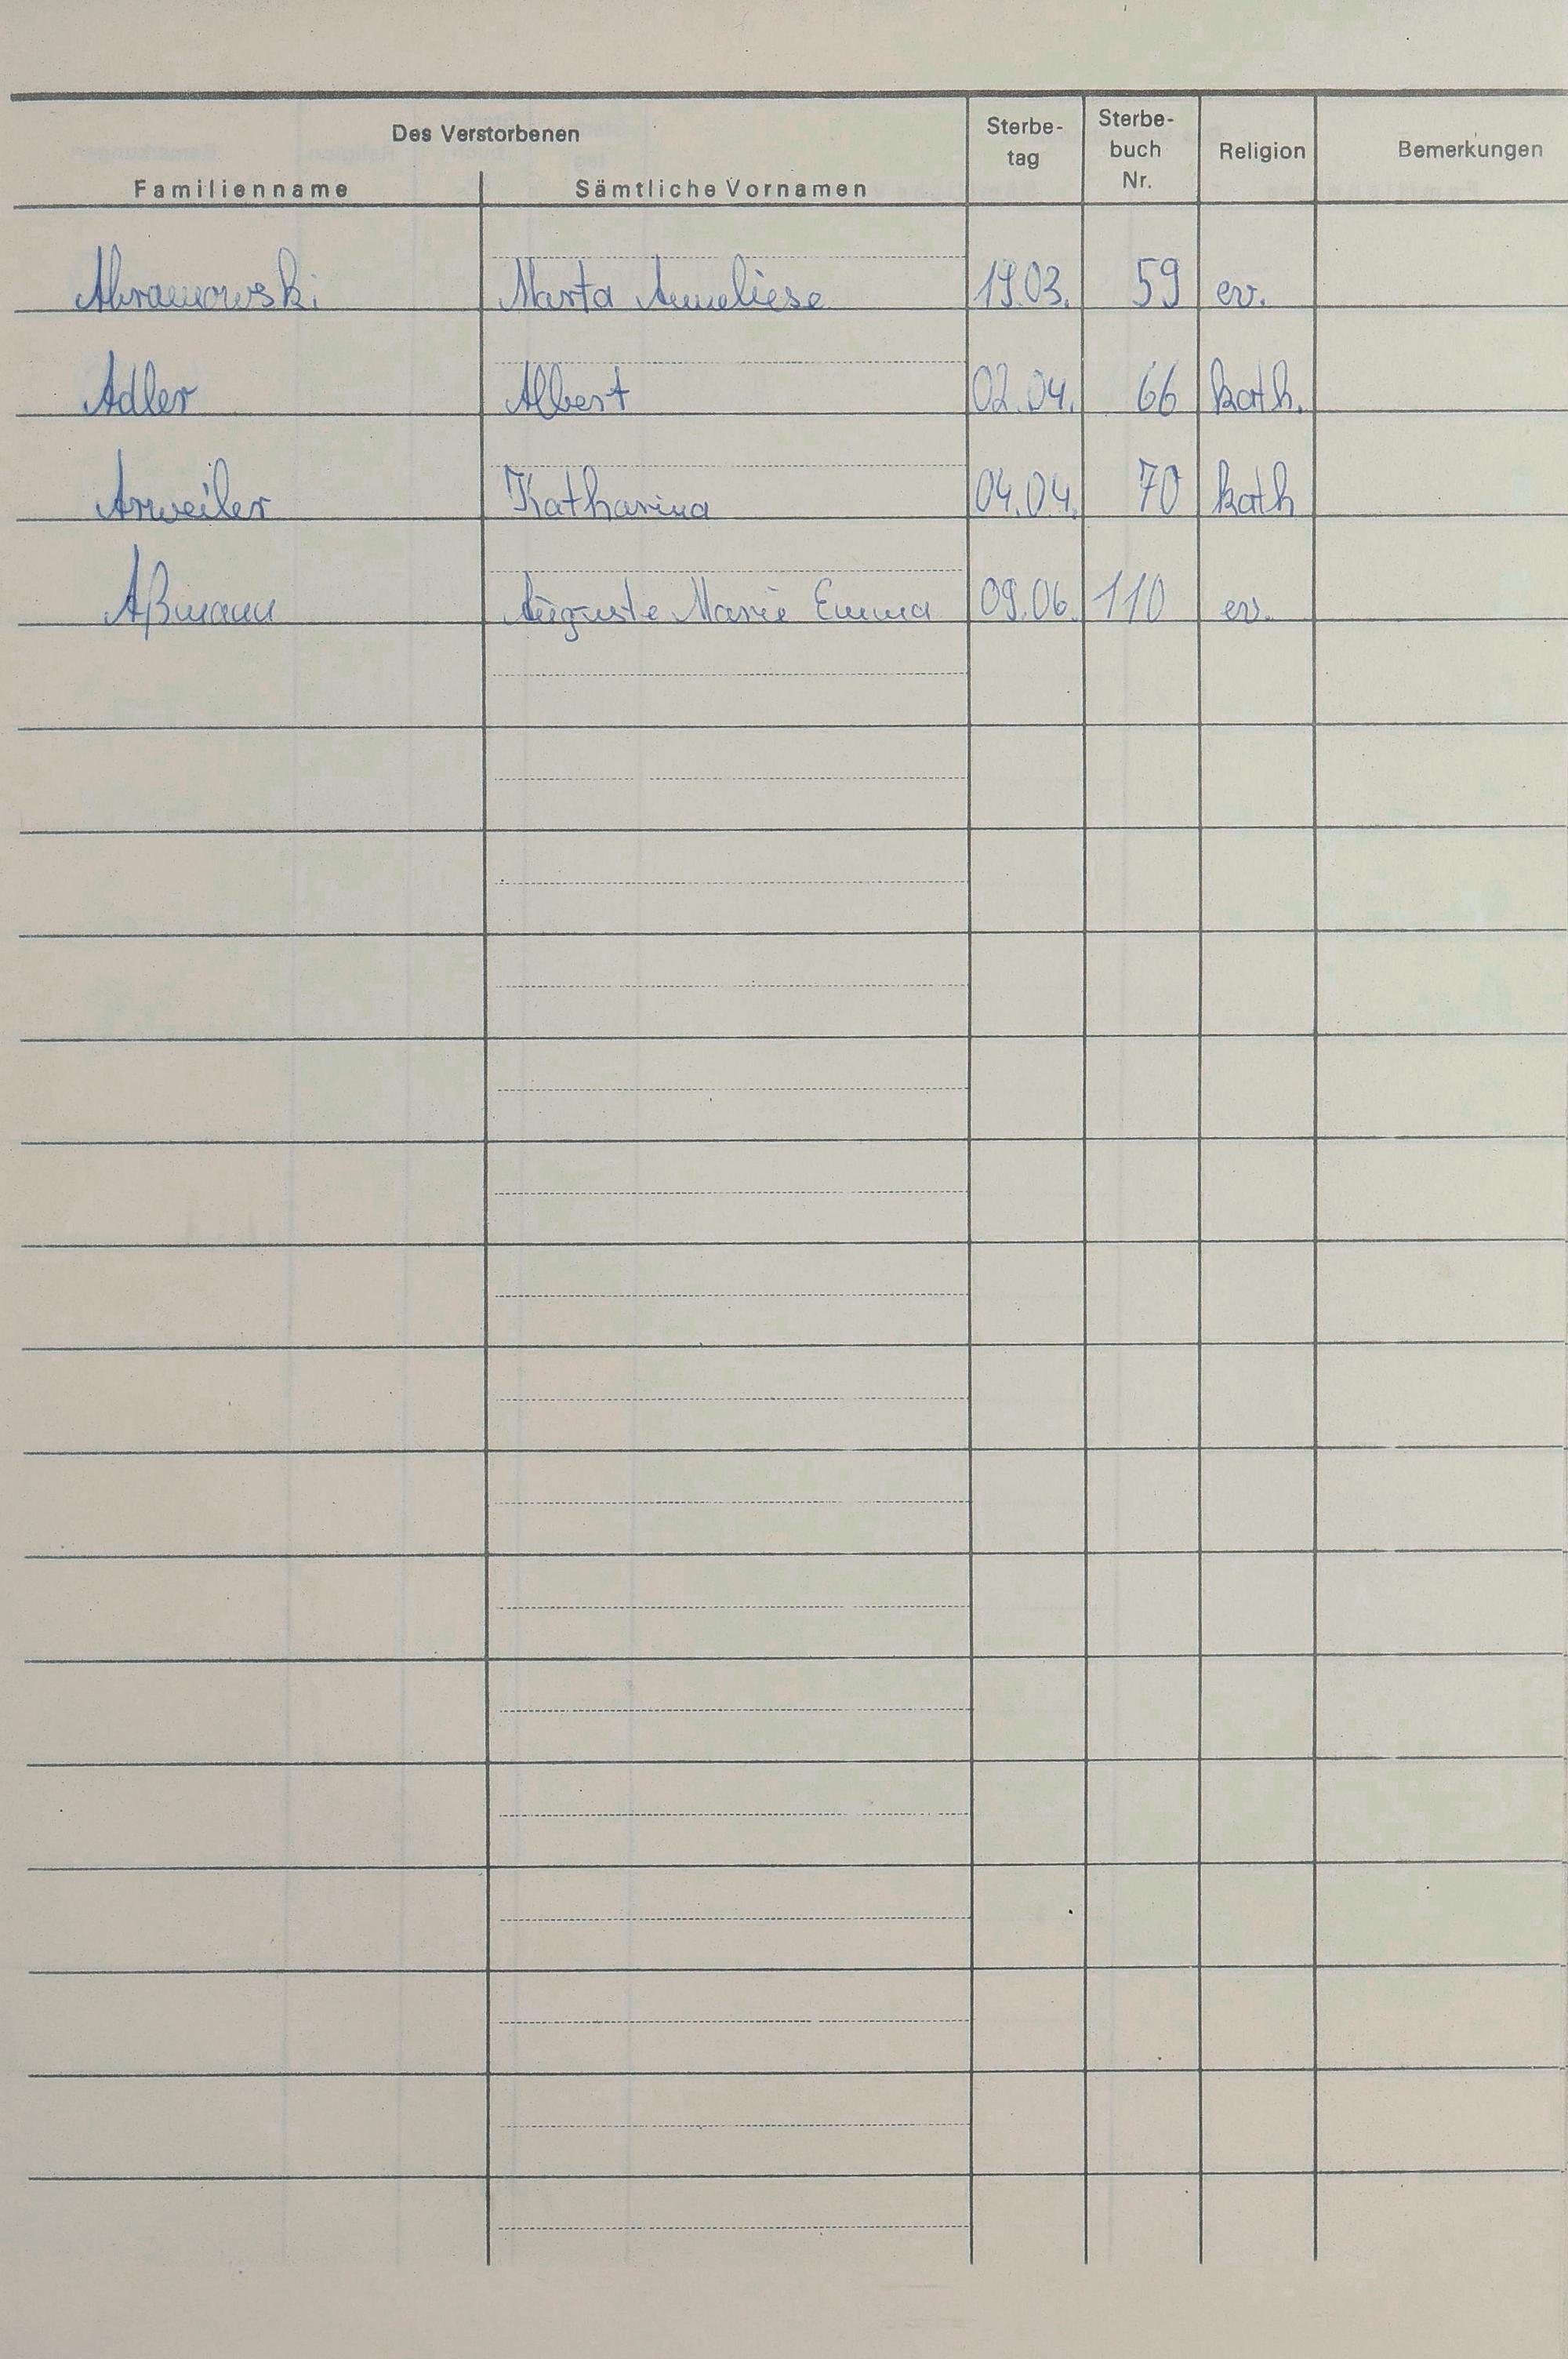 Des Verstorbenen
Familienname Sämtliche Vornamen Sterbe-tag Sterbe-buch Nr. Religion Bemerkungen
Abramowski Marta Anneliese 19.03. 59 ev.
Adler Albert 02.04. 66 kath.
Arweiler Katharina 04.04. 70 kath
Aßmann Auguste Marie Emma 09.06. 110 ev.